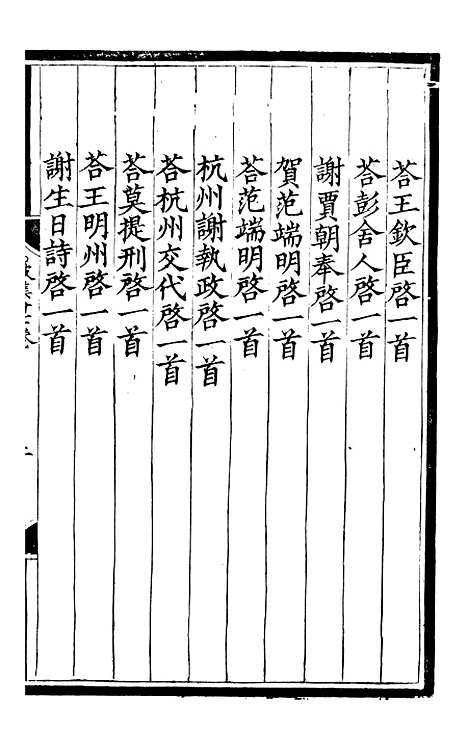 荅王欽臣啓一首
荅彭舍人啓一首
謝賈朝奉啓一首
賀范端明啓一首
荅范端明啓一首
杭州謝執政啓一首
荅杭州交代啓一首
荅莫提刑啓一首
荅王明州啓一首
謝生日詩啓一首